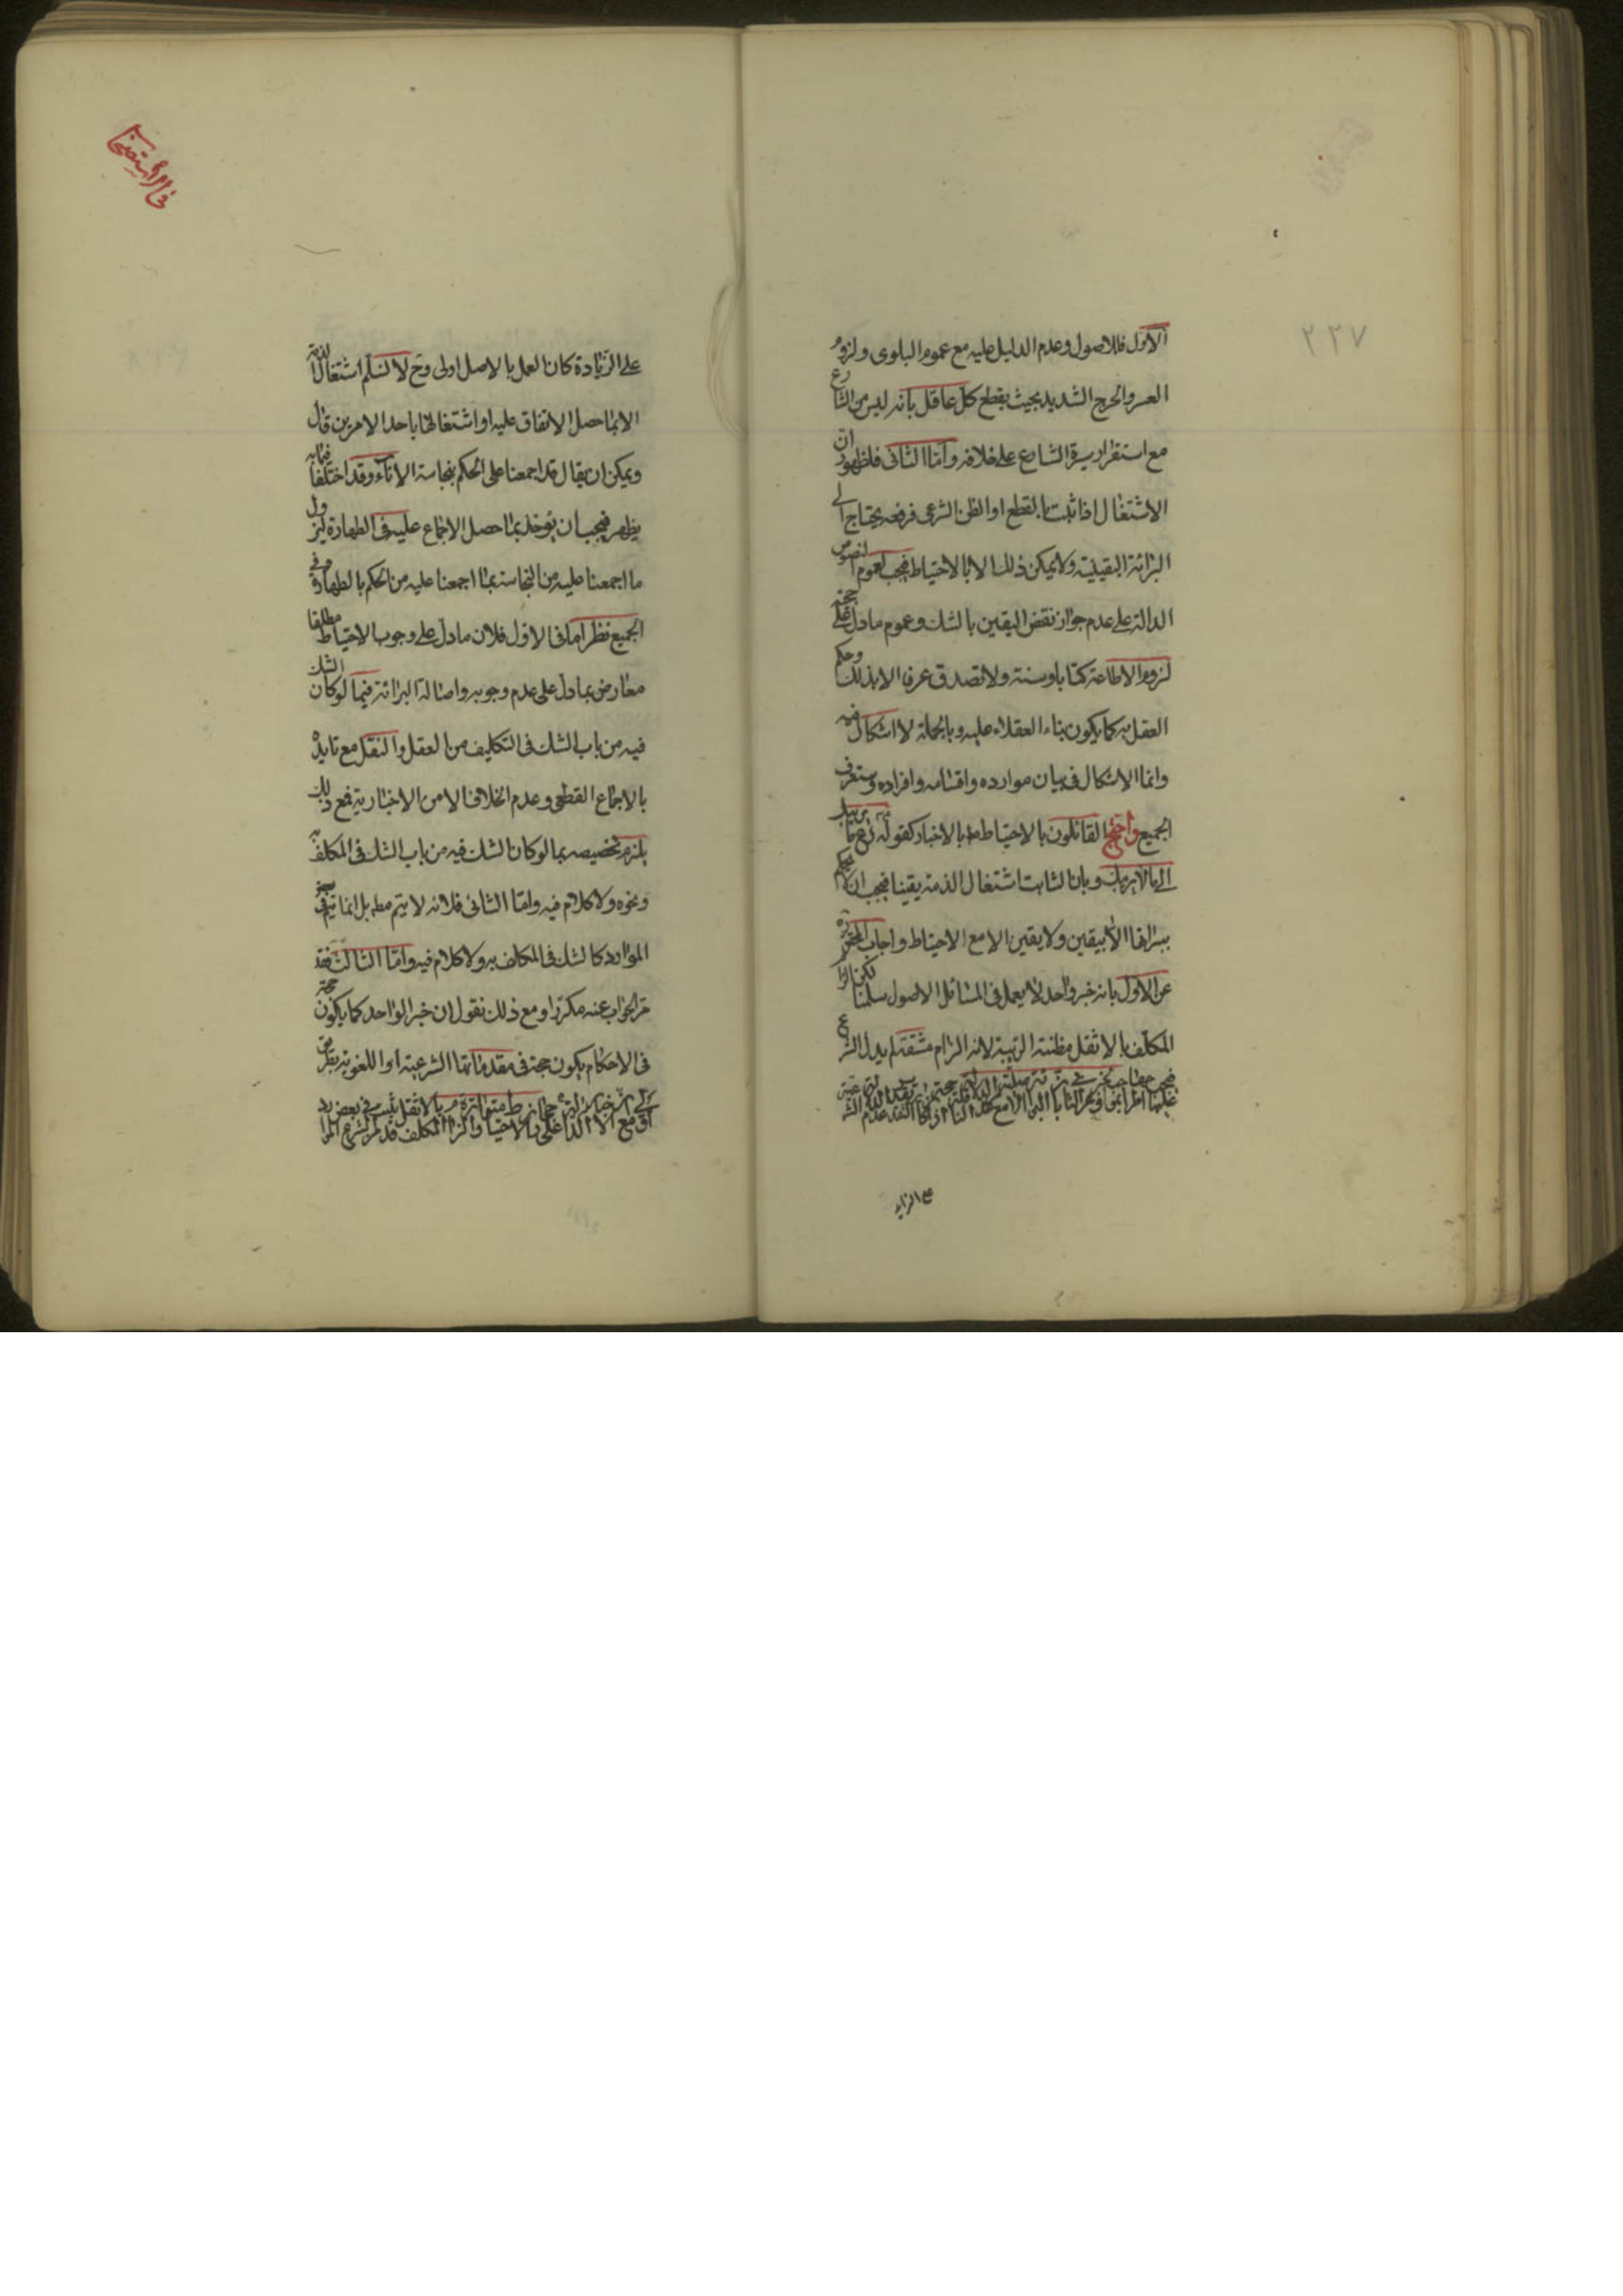 ٢٢٧
الاول فللاصول وعدم الدليل عليه مع عموم البلوى ولزوم
العسر والحرج الشديد بحيث يقطع كل عاقل بانه ليس من الشارع
مع استقرار سيرة الشارع على خلافه واما الثانى فلظهور ان
الاشتغال اذا ثبت بالقطع او الظن الشرعى فرفعه يحتاج الى
البرائة اليقينية ولا يمكن ذلك الا بالاحتياط فيجب لعموم النصوص
الدالة على عدم جواز نقض اليقين بالشك وعموم ما دل على حجية
لزوم الاطاعة كتابا وسنة ولا تصدق عرفا الا بذلك وحكم
العقل به كما يكون بناء العقلاء عليه وبالجملة لا اشكال فيه
وانما الاشكال فى بيان موارده واقسامه وافراده وستعرف
الجميع واحتج القائلون بالاحتياط مط بالاخبار كقوله دع ما يريبك
الى ما لا يريبك وبان الثابت اشتغال الذمة يقينا فيجب ان يحكم
ببرائتها الا بيقين ولا يقين الا مع الاحتياط واجاب المحقق ره
عن الاول بانه خبر واحد لا يعمل فى المسائل الاصول سلمنا لكن الزام
المكلف بالاثقل مظنة الريبة لانه الزام مشقة لم يدل الشرع
على الزيا
فى الاستصحا
على الزيادة كان العمل بالاصل اولى وح لا نسلم اشتغال الذمة
الا بما حصل الاتفاق عليه او اشتغالها باحد الامرين قال
ويمكن ان يقال قد اجمعنا على الحكم بنجاسة الاناء وقد اختلفا فيما به
يظهر فيجب ان يؤخذ بما حصل الاجماع عليه فى الطهارة ليزول
ما اجمعنا عليه من النجاسة بما اجمعنا عليه من الحكم بالطهارة وفى
الجميع نظر اما فى الاول فلان ما دل على وجوب الاحتياط مطلقا
معارض بما دل على عدم وجوبه واصالة البرائة فيما لو كان الشك
فيه من باب الشك فى التكليف من العقل والنقل مع تايده
بالاجماع القطعى وعدم الخلاف الا من الاخبارية فمع ذلك
يلزم تخصيصه بما لو كان الشك فيه من باب الشك فى المكلف به
ونحوه ولا كلام فيه واما الثانى فلانه لا يتم مط بل انما يتم فى بعض
الموارد كالشك فى المكلف به ولا كلام فيه واما الثالث فقد
مر الجواب عنه مكررا ومع ذلك نقول ان خبر الواحد كما يكون حجة
فى الاحكام يكون حجة فى مقدماتها الشرعية او اللغوية